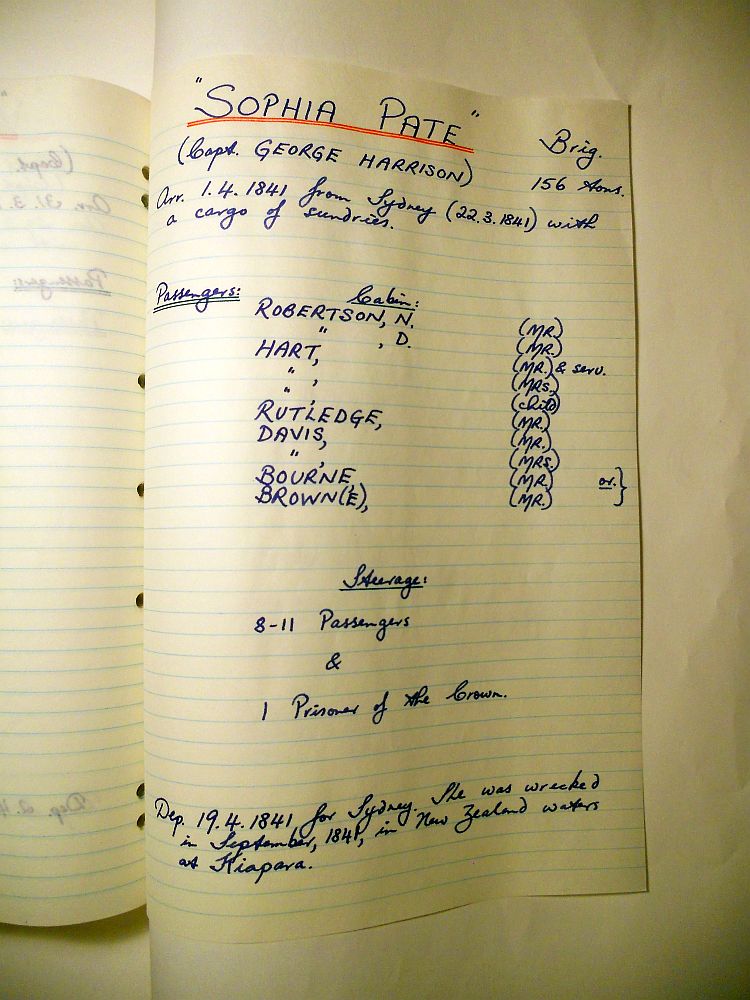 "SOPHIA PATE"
Brig.
(Capt. GEORGE HARRISON)
156 tons.
Arr. 1.4.1841 from Sydney (22.3.1841) with
a cargo of sundries.
Passengers:
Cabin:
ROBERTSON, N. (MR.)
" , D. (MR.)
HART, (MR.) & serv.
" , (MRS.)
" , (child)
RUTLEDGE, (MR.)
DAVIS, (MR.)
" , (MRS.)
BOURNE, (MR.) or. }
BROWN(E), (MR.)
Steerage:
8-11 Passengers
&
1 Prisoner of the Crown.
Dep. 19.4.1841 for Sydney. She was wrecked
in September, 1841, in New Zealand waters
at Kiapara.